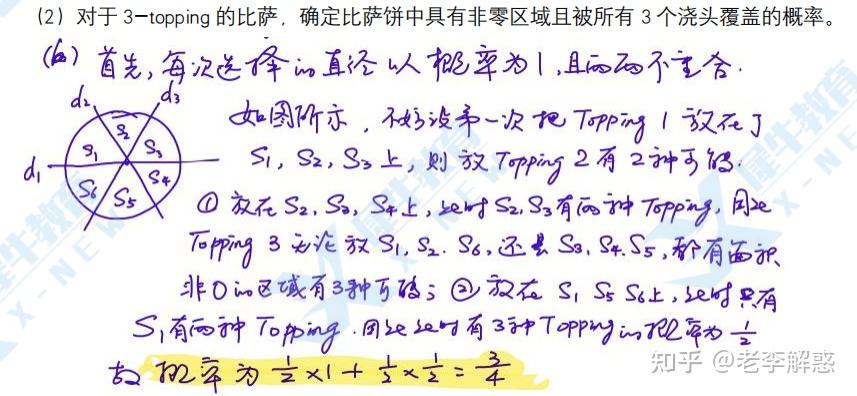 （2）对于 3-topping 的比萨，确定比萨饼中具有非零区域且被所有 3 个浇头覆盖的概率。
(b) 首先，每次选择的直径以概率为1，且两两不重合.
d2 d3
如图所示，不妨设第一次把 Topping 1 放在了
d1 S1 S2 S3 S4 S5 S6
S1, S2, S3 上，则放 Topping 2 有 2 种可能.
① 放在 S2, S3, S4 上，此时 S2, S3 有两种 Topping, 因此
Topping 3 无论放 S1, S2. S6, 还是 S3, S4, S5, 都有面积
非0的区域有3种可能；② 放在 S1 S5 S6上，此时只有
S1有两种 Topping. 因此此时有3种Topping的概率为 1/2
故 概率为 1/2 × 1 + 1/2 × 1/2 = 3/4
知乎 @老李解惑
犀牛教育
X-NEW